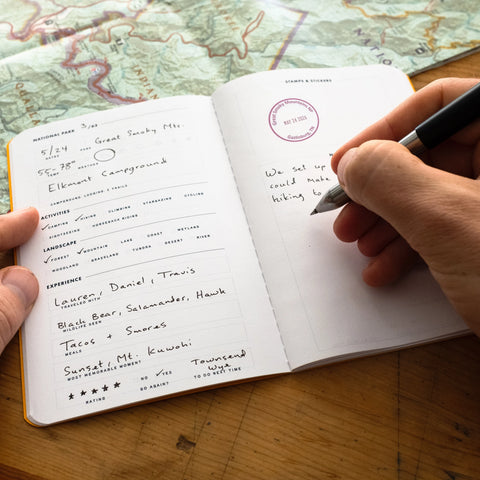 NATIONAL PARK 3/63
5/24 PARK Great Smoky Mts.
DATES
55° 78° WEATHER
Elkmont Campground
CAMPGROUND, LODGING, & TRAILS
ACTIVITIES
✓ CAMPING ✓ HIKING CLIMBING STARGAZING CYCLING
SIGHTSEEING HORSEBACK RIDING
LANDSCAPE
✓ FOREST ✓ MOUNTAIN LAKE COAST WETLAND
WOODLAND GRASSLAND TUNDRA DESERT RIVER
EXPERIENCE
Lauren, Daniel, Travis
TRAVELED WITH
Black Bear, Salamander, Hawk
WILDLIFE SEEN
Tacos + Smores
MEALS
Sunset, Mt. Kuwohi
MOST MEMORABLE MOMENT
★★★★★ NO ✓YES Townsend Wye
RATING GO AGAIN? TO DO NEXT TIME
STAMPS & STICKERS
Great Smoky Mountains NP
MAY 24 2025
Gatlinburg, TN
We set up
could make
hiking to